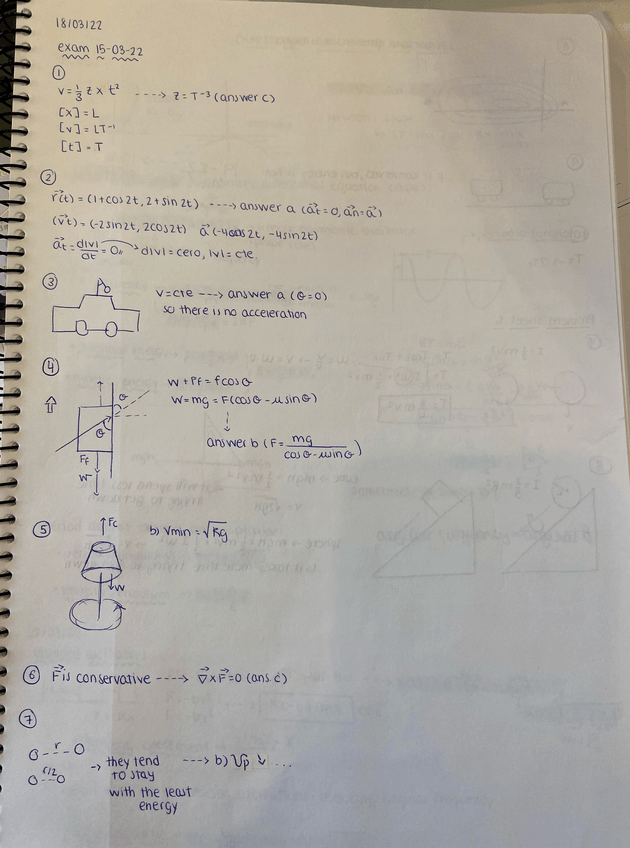 18/03/22
exam 15-03-22
①
v = 1/3 z x t² ----> z = T⁻³ (answer c)
[x] = L
[v] = LT⁻¹
[t] = T
②
r⃗(t) = (1+cos2t, 2+sin 2t) ----> answer a (a⃗t = 0, a⃗n = a⃗)
(v⃗t) = (-2sin2t, 2cos2t) a⃗(-4cos2t, -4sin2t)
a⃗t = d|v|/dt = 0,, d|v| = cero, |v| = cte.
③
v = cte ---> answer a (θ=0)
so there is no acceleration
④
θ
θ
Ff
W
W + Ff = fcosθ
W = mg = F(cosθ - μsinθ)
answer b (F = mg/(cosθ - μsinθ))
⑤
Fc
W
b) Vmin = √Rg
⑥ F⃗ is conservative ----> ∇⃗×F⃗=0 (ans c)
⑦
O--r--O
O r/2 O
-> they tend ---> b) Up ↓ ...
to stay
with the least
energy